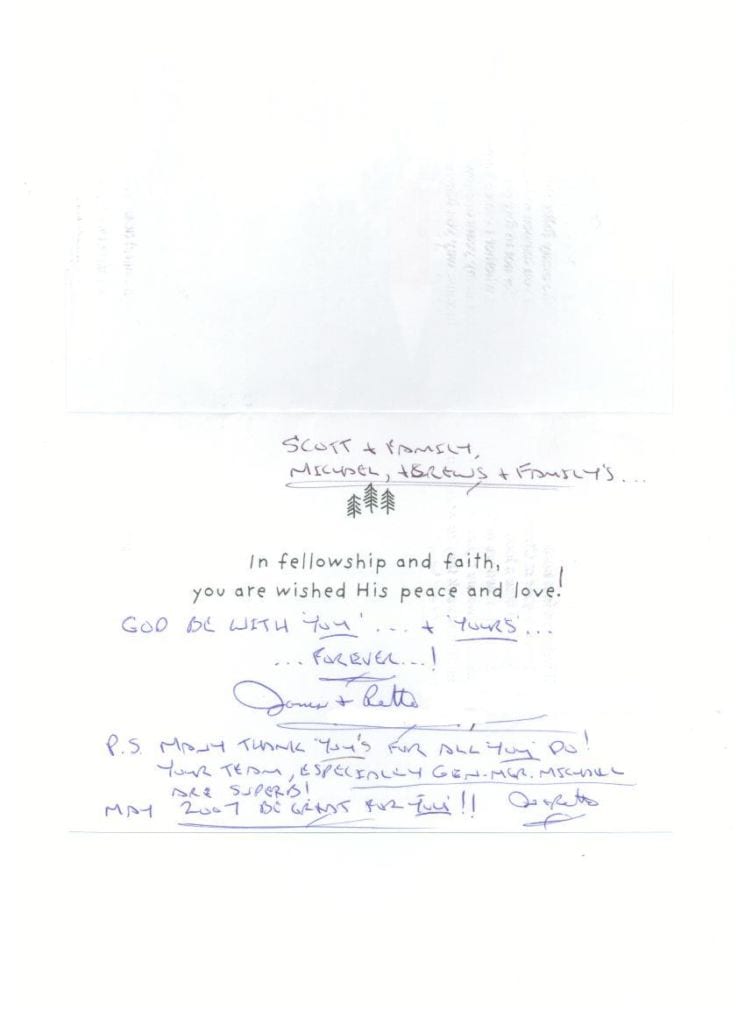 SCOTT + FAMILY,
MICHAEL, + BREWS + FAMILY'S...
In fellowship and faith,
you are wished His peace and love.!
GOD BE WITH 'YOU'... + 'YOURS'...
...FOREVER...!
James +
P.S. MANY THANK 'YOU'S FOR ALL 'YOU' DO!
YOUR TEAM, ESPECIALLY GEN. MGR. MICHAEL
ARE SUPERB!
MAY 2007 BE GREAT FOR 'YOU'!!